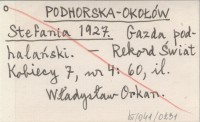 PODHORSKA-OKOŁÓW
Stefania 1927. Gazda pod-
halański. — Rekord Świat
Kobiecy 7, nr 4: 60, il.
Władysław Orkan.